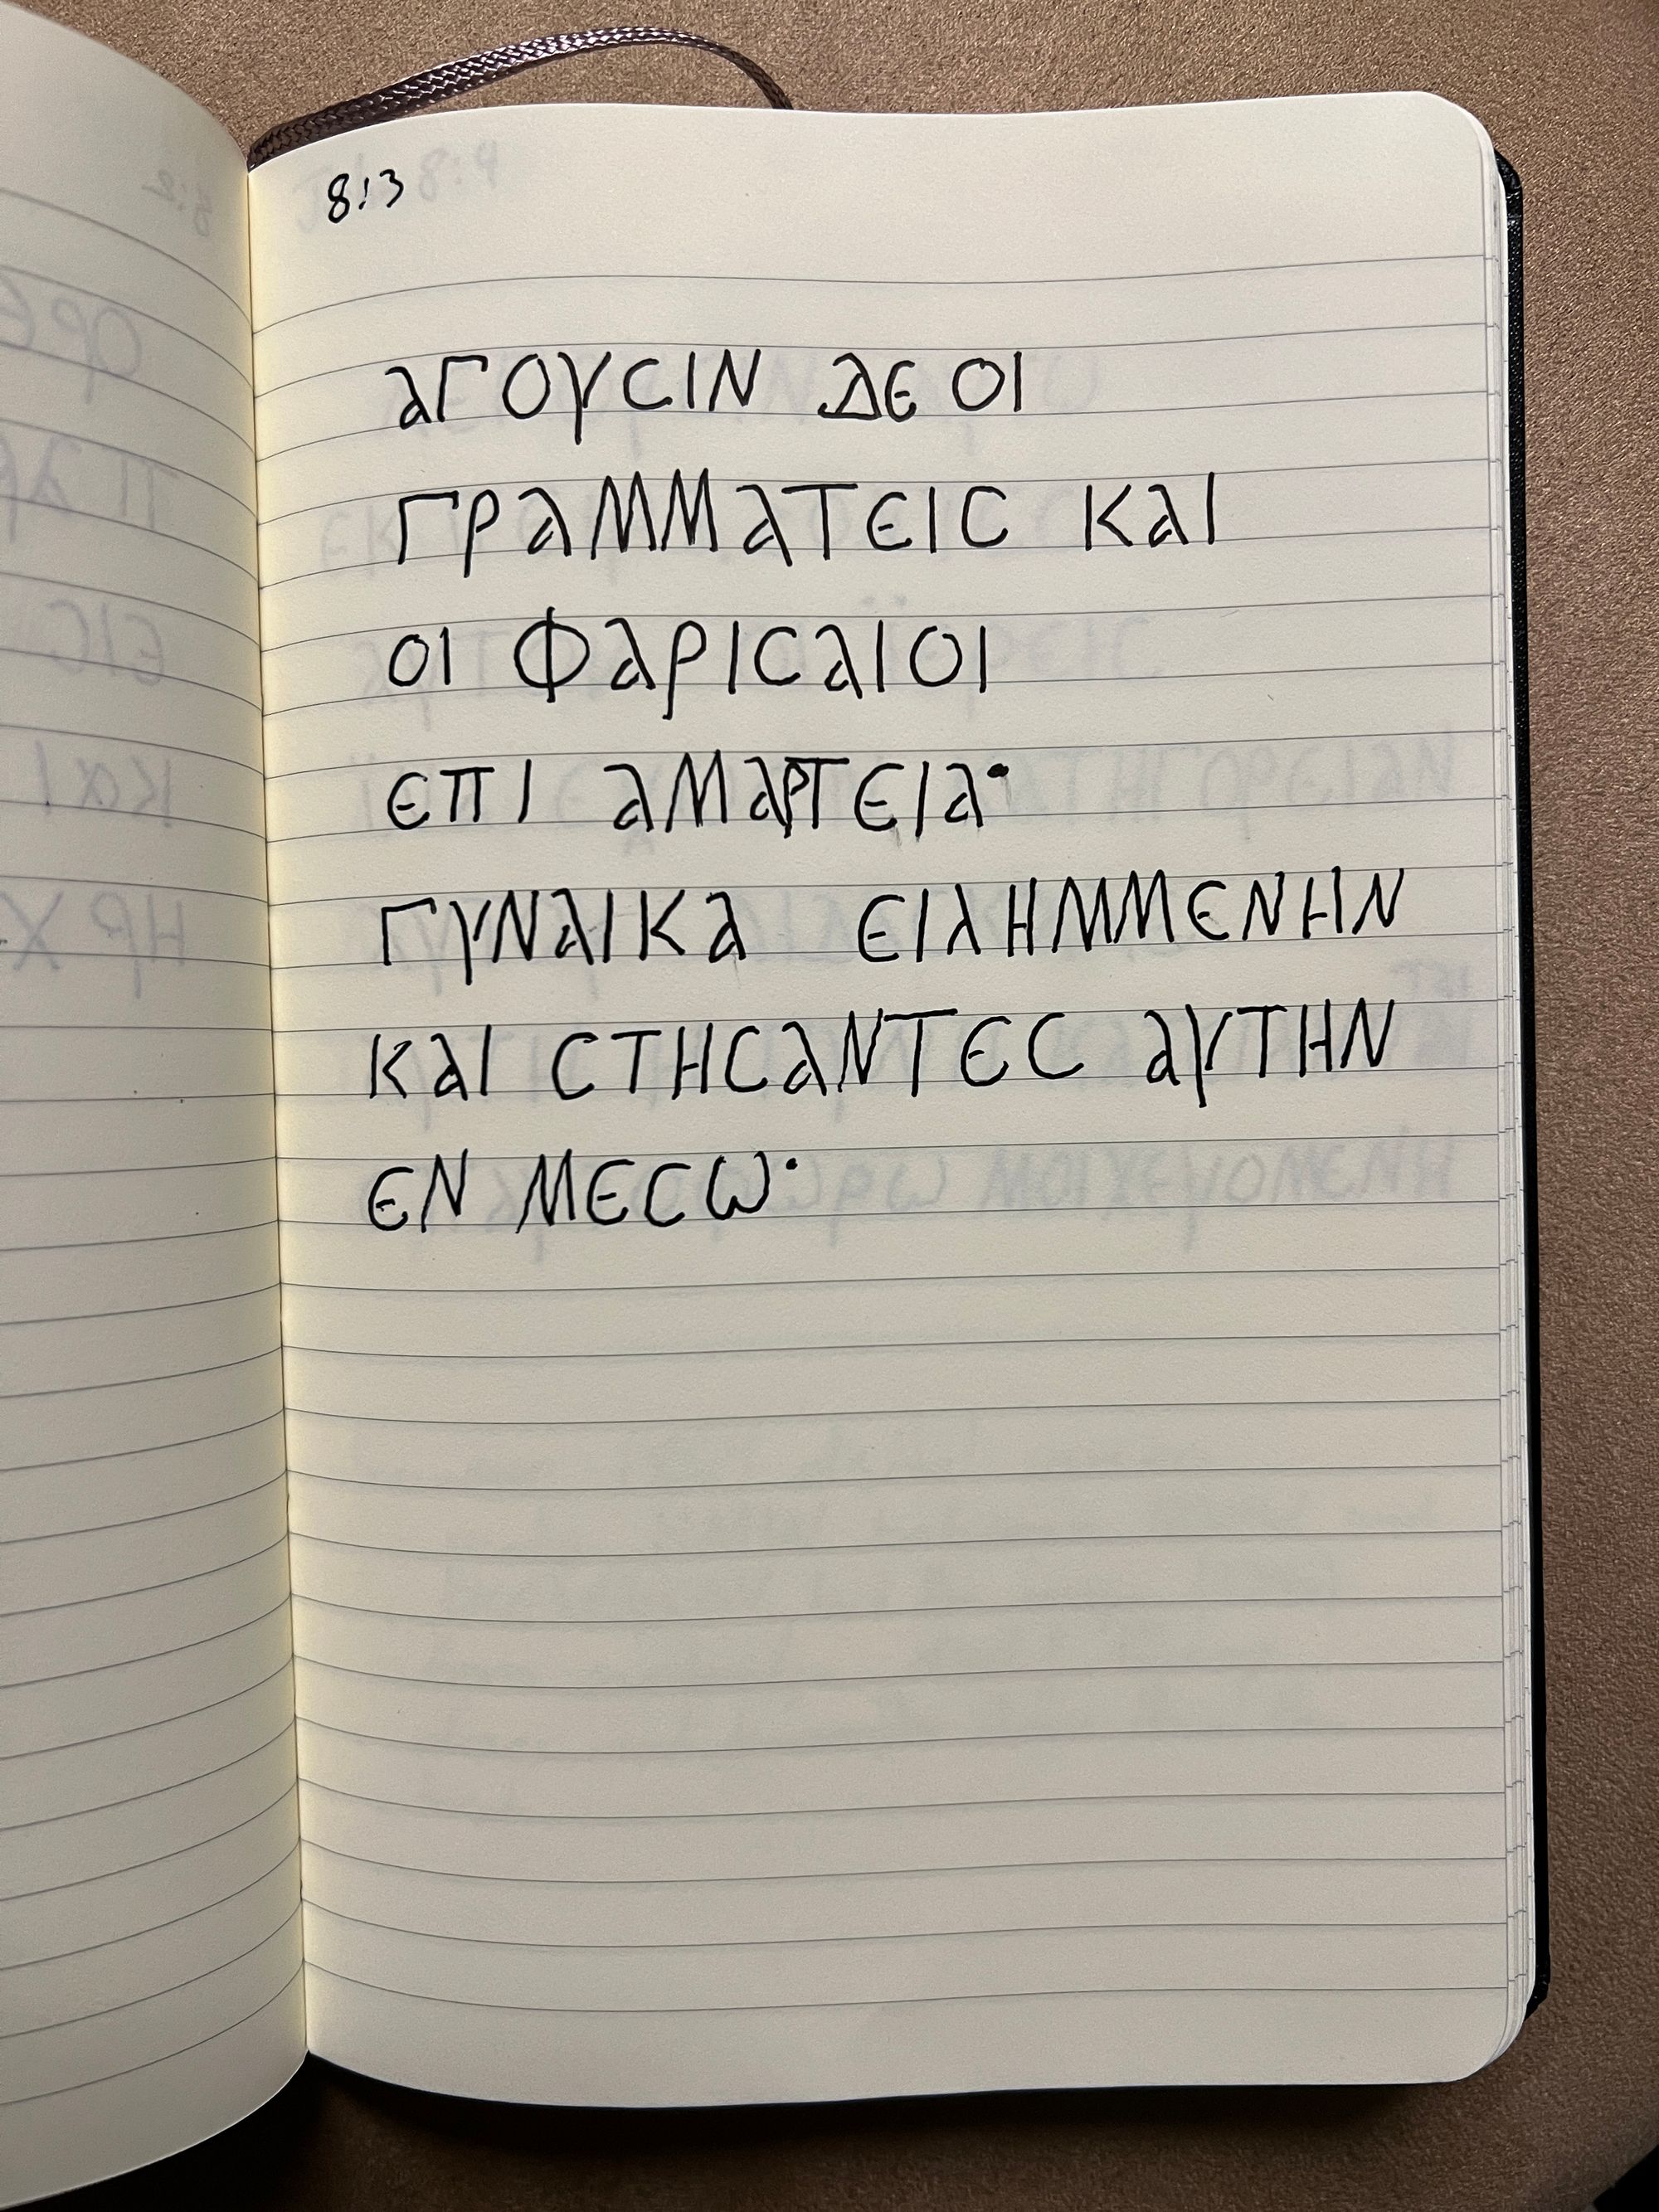 8:3
αΓΟΥCΙΝ ΔЄ ΟΙ
ΓΡαΜΜαΤЄΙC ΚαΙ
ΟΙ ΦαΡΙCαΙΟΙ
ЄΠΙ αΜαΡΤЄΙα·
ΓΥΝαΙΚα ЄΙΛΗΜΜЄΝΗΝ
ΚαΙ CΤΗCαΝΤЄC αΥΤΗΝ
ЄΝ ΜЄCω·